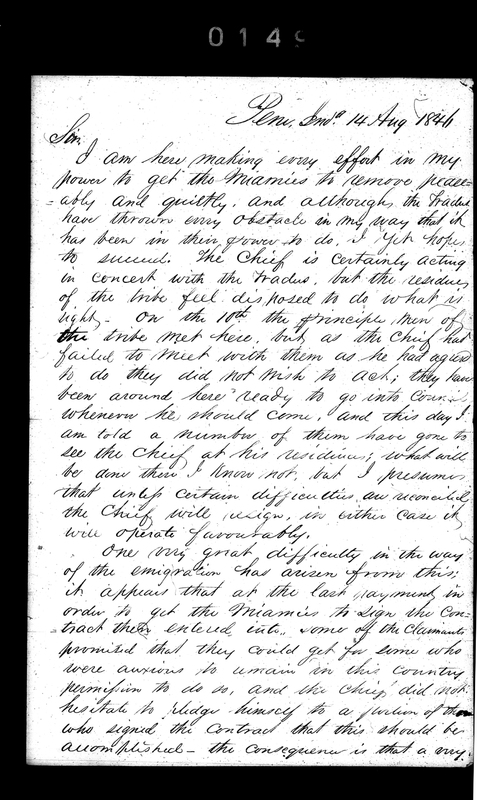 0149
Peru, Inda 14 Aug 1846
Sir,
I am here making every effort in my
power to get the Miamies to remove peace=
=ably and quietly, and although the Traders
have thrown every obstacle in my way that it
has been in their power to do, I yet hope
to succeed. The Chief is certainly acting
in concert with the Traders, but the residue
of the tribe feel disposed to do what is
right. On the 10th the principle men of
the tribe met here, but as the Chief had
failed to meet with them as he had agreed
to do they did not wish to act; they have
been around here ready to go into
whenever he should come, and this day I
am told a number of them have gone to
see the Chief at his residence; what will
be done there I know not, but I presume
that unless certain difficulties are reconciled
the Chief will resign, in either case it
will operate favourably.
One very great difficulty in the way
of the emigration has arisen from this;
it appears that at the last payment in
order to get the Miamies to sign the Con=
tract then entered into, some of the Claimants
promised that they could get for some who
were anxious to remain in this country
permission to do so, and the Chief did not
hesitate to pledge himself to a portion of those
who signed the contract that this should be
accomplished - the consequence is that a very